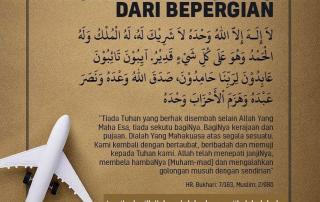 DARI BEPERGIAN
لَا إِلَـهَ إِلَّا اللهُ وَحْدَهُ لَا شَرِيْكَ لَهُ، لَهُ الْمُلْكُ وَلَهُ
الْحَمْدُ وَهُوَ عَلَى كُلِّ شَيْءٍ قَدِيْرٌ. آيِبُوْنَ تَائِبُوْنَ
عَابِدُوْنَ لِرَبِّنَا حَامِدُوْنَ، صَدَقَ اللهُ وَعْدَهُ وَنَصَرَ
عَبْدَهُ وَهَزَمَ الْأَحْزَابَ وَحْدَهُ
"Tiada Tuhan yang berhak disembah selain Allah Yang
Maha Esa, tiada sekutu bagiNya. BagiNya kerajaan dan
pujaan. Dialah Yang Mahakuasa atas segala sesuatu.
Kami kembali dengan bertaubat, beribadah dan memuji
kepada Tuhan kami. Allah telah menepati janjiNya,
membela hambaNya (Muham-mad) dan mengalahkan
golongan musuh dengan sendirian"
HR. Bukhari: 7/163, Muslim: 2/980